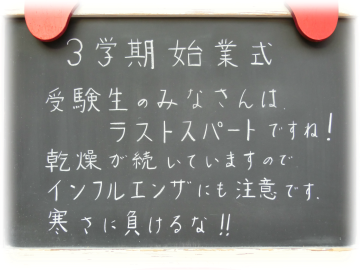 3学期始業式
受験生のみなさんは、
ラストスパートですね!
乾燥が続いていますので
インフルエンザにも注意です.
寒さに負けるな!!